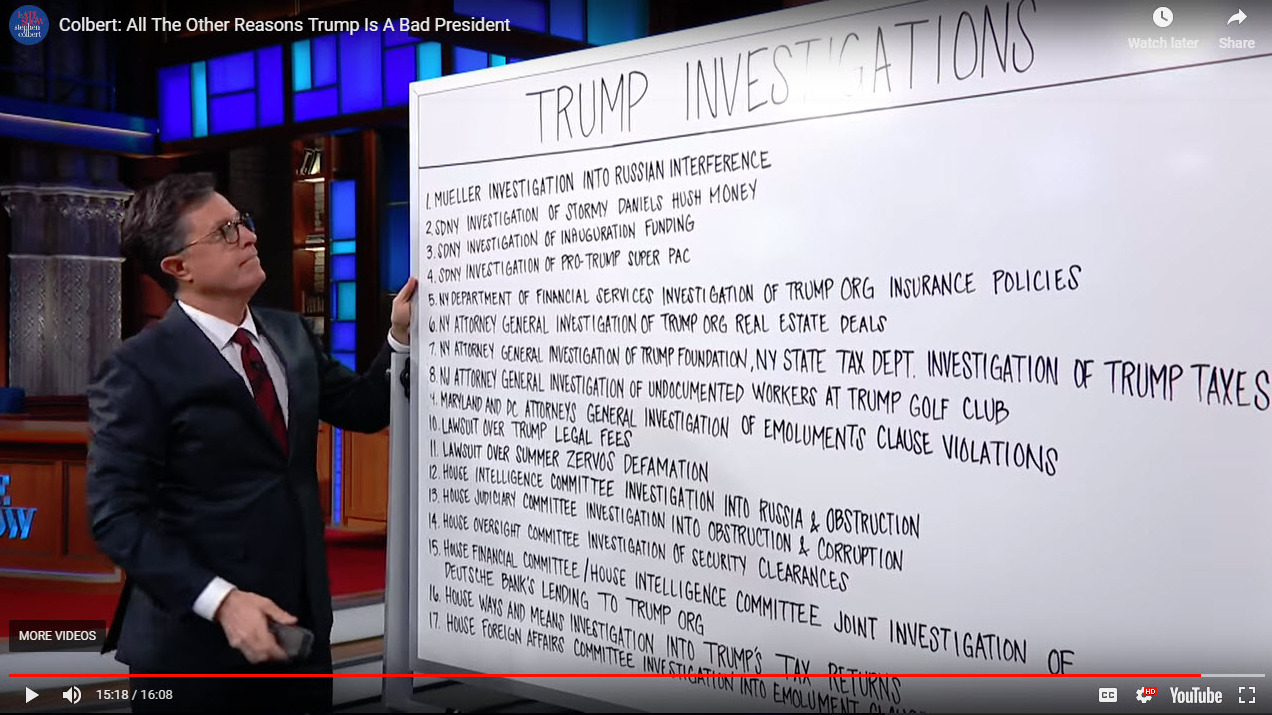 THE LATE SHOW stephen colbert
Colbert: All The Other Reasons Trump Is A Bad President
Watch later
Share
TRUMP INVESTIGATIONS
1. MUELLER INVESTIGATION INTO RUSSIAN INTERFERENCE
2. SDNY INVESTIGATION OF STORMY DANIELS HUSH MONEY
3. SDNY INVESTIGATION OF INAUGURATION FUNDING
4. SDNY INVESTIGATION OF PRO-TRUMP SUPER PAC
5. NY DEPARTMENT OF FINANCIAL SERVICES INVESTIGATION OF TRUMP ORG INSURANCE POLICIES
6. NY ATTORNEY GENERAL INVESTIGATION OF TRUMP ORG REAL ESTATE DEALS
7. NY ATTORNEY GENERAL INVESTIGATION OF TRUMP FOUNDATION, NY STATE TAX DEPT. INVESTIGATION OF TRUMP TAXES
8. NJ ATTORNEY GENERAL INVESTIGATION OF UNDOCUMENTED WORKERS AT TRUMP GOLF CLUB
9. MARYLAND AND DC ATTORNEYS GENERAL INVESTIGATION OF EMOLUMENTS CLAUSE VIOLATIONS
10. LAWSUIT OVER TRUMP LEGAL FEES
11. LAWSUIT OVER SUMMER ZERVOS DEFAMATION
12. HOUSE INTELLIGENCE COMMITTEE INVESTIGATION INTO RUSSIA & OBSTRUCTION
13. HOUSE JUDICIARY COMMITTEE INVESTIGATION INTO OBSTRUCTION & CORRUPTION
14. HOUSE OVERSIGHT COMMITTEE INVESTIGATION OF SECURITY CLEARANCES
15. HOUSE FINANCIAL COMMITTEE/HOUSE INTELLIGENCE COMMITTEE JOINT INVESTIGATION OF
DEUTSCHE BANK'S LENDING TO TRUMP ORG
16. HOUSE WAYS AND MEANS INVESTIGATION INTO TRUMP'S TAX RETURNS
17. HOUSE FOREIGN AFFAIRS COMMITTEE INVESTIGATION INTO EMOLUMENT
MORE VIDEOS
15:18 / 16:08
CC
HD
YouTube